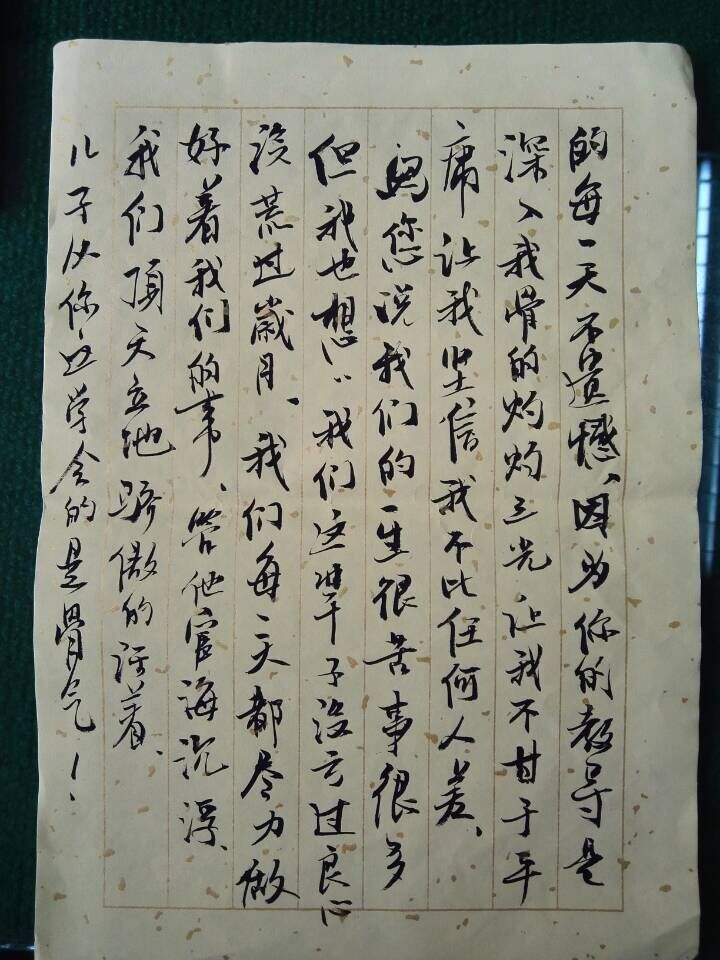 的每一天不遗憾、因为你的教导是
深入我骨的灼灼三光让我不甘于平
庸让我坚信我不比任何人差、
妈您说我们的一生很苦事很多
但我也想:我们这辈子没亏过良心
没荒过岁月、我们每一天都尽力做
好着我们的事、管他宦海沉浮、
我们顶天立地骄傲的活着、
儿子从你这学会的是骨气!